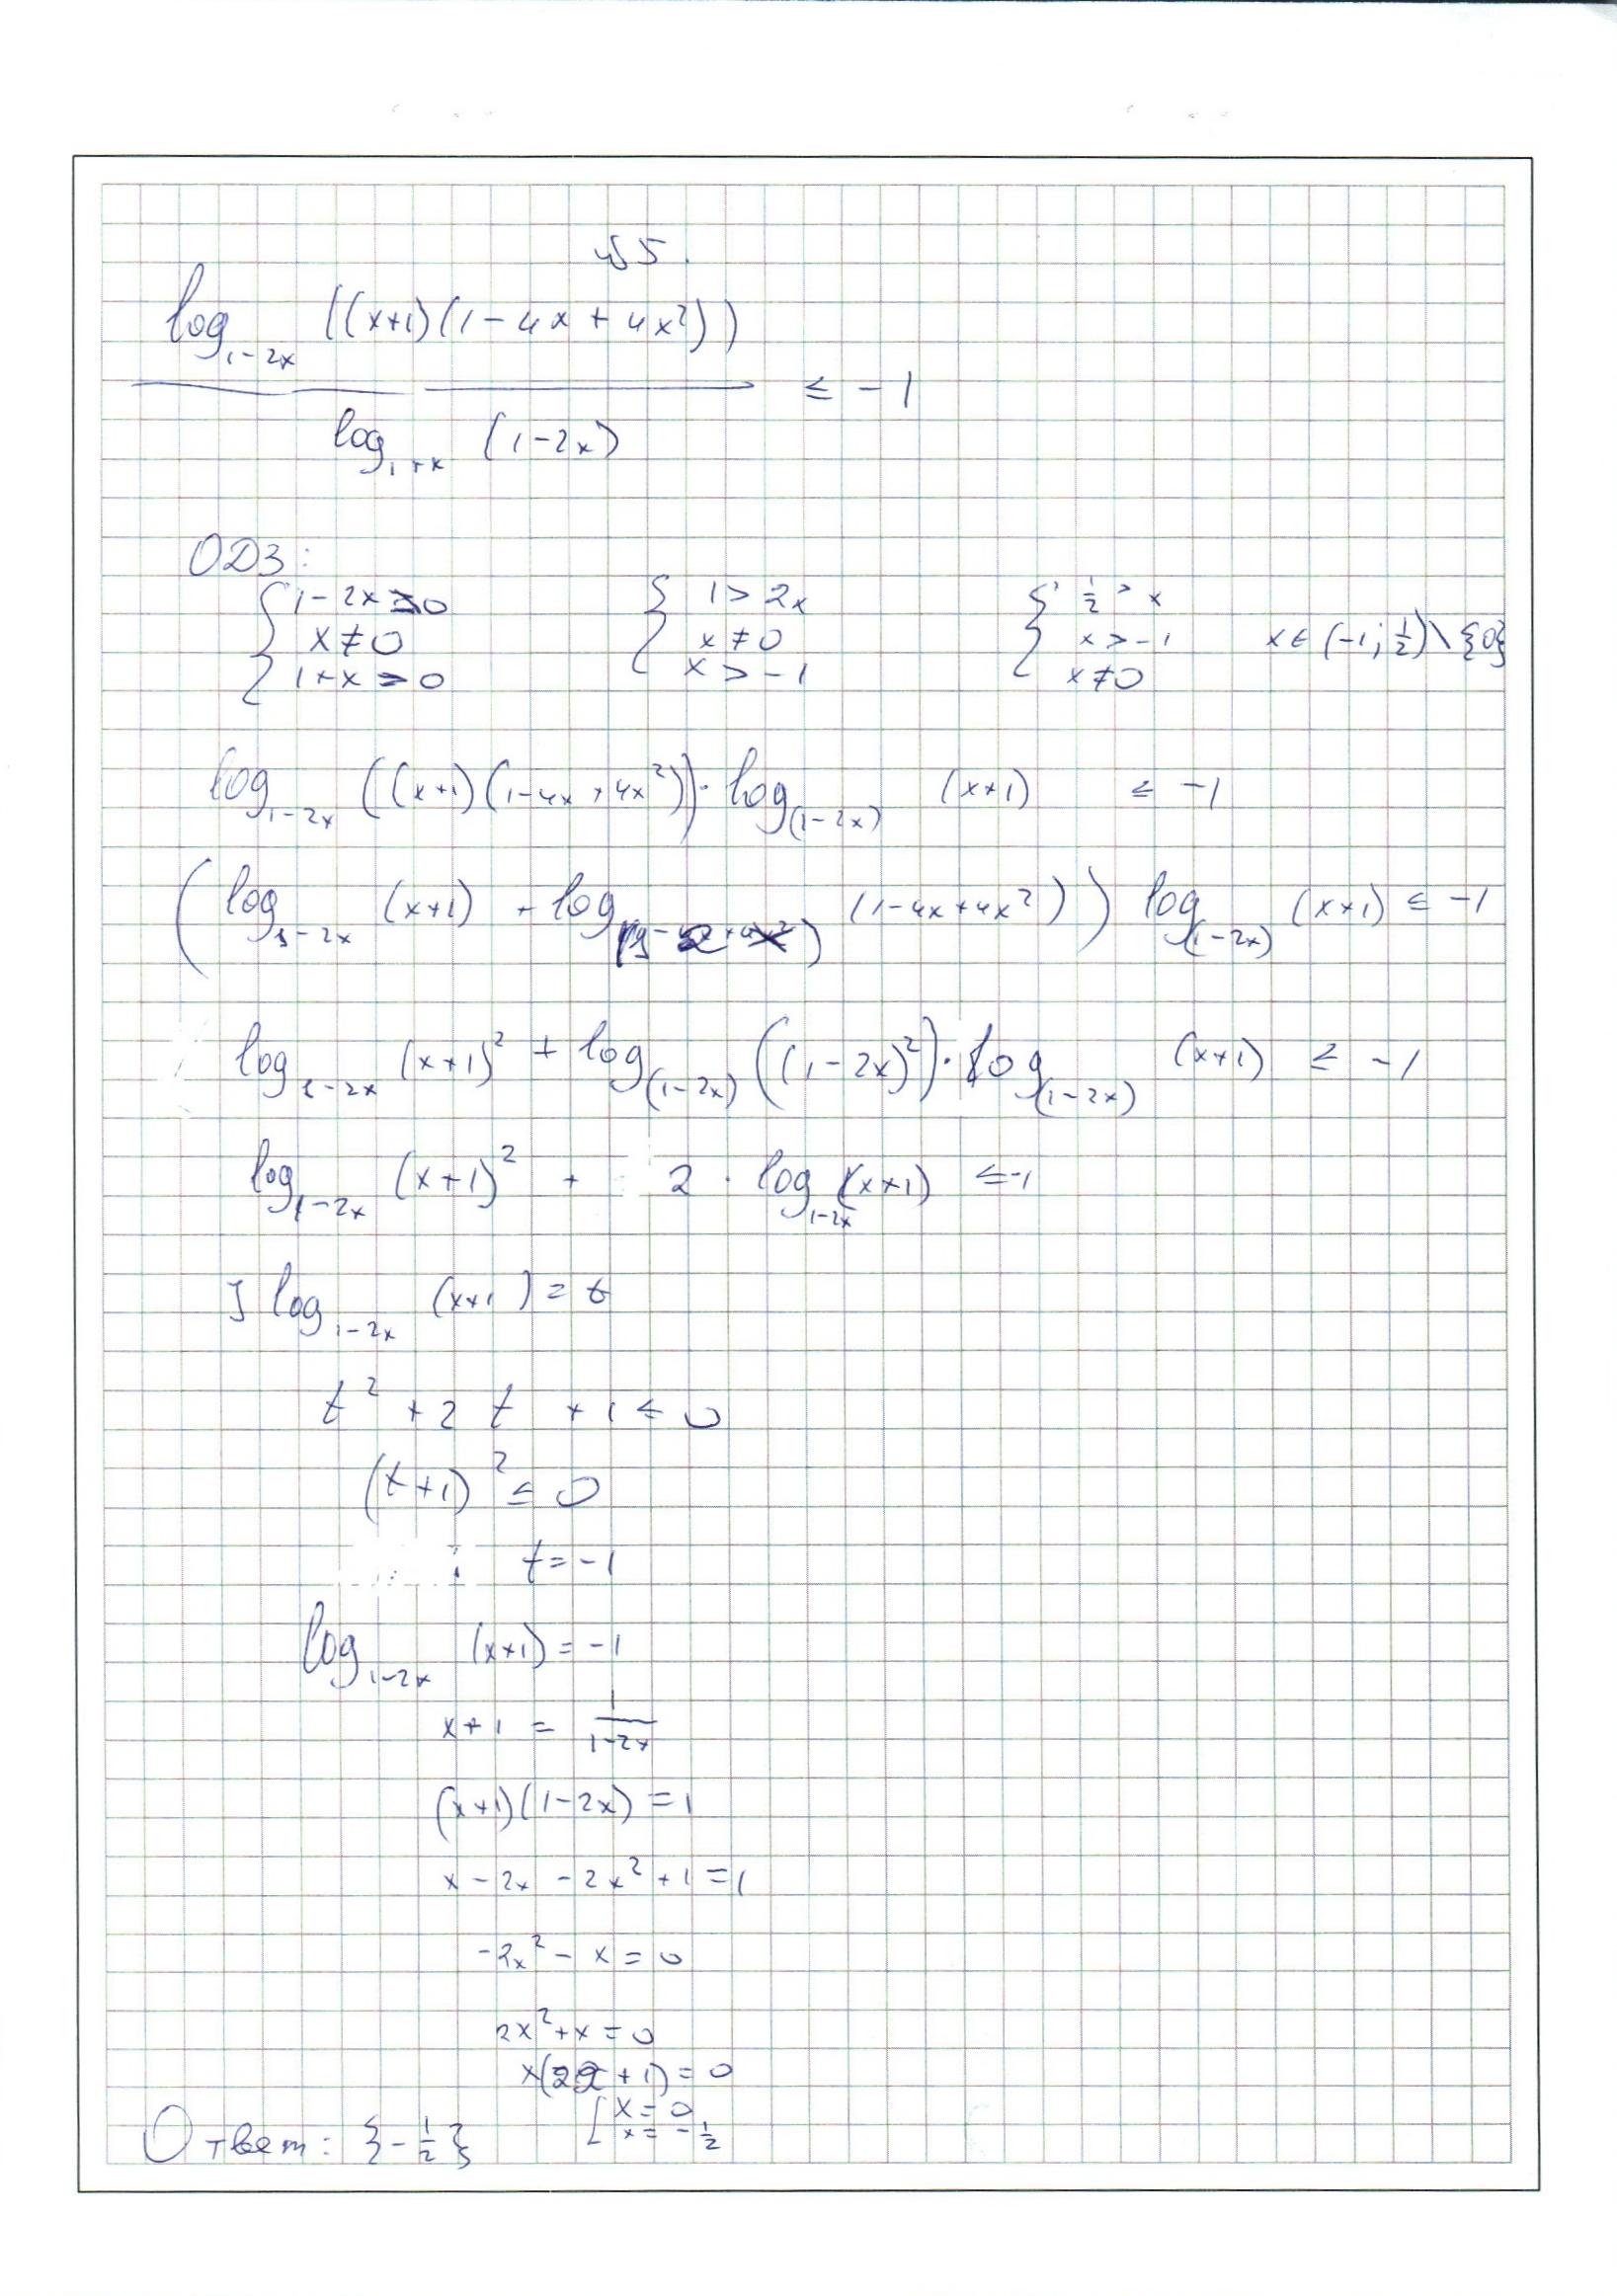 №5.
log_{1-2x} ((x+1)(1-4x+4x²))
≤ -1
log_{1+x} (1-2x)
ОДЗ:
{ 1-2x>0 { 1>2x { 1/2 > x
x≠0 x≠0 x>-1 x∈(-1;1/2)\{0}
1+x>0 x>-1 x≠0
log_{1-2x} ((x+1)(1-4x+4x²)) · log_{(1-2x)} (x+1) ≤ -1
(log_{1-2x} (x+1) + log (1-4x+4x²)) log_{(1-2x)} (x+1) ≤ -1
log_{1-2x} (x+1)² + log_{(1-2x)} ((1-2x)²) · log_{(1-2x)} (x+1) ≤ -1
log_{1-2x} (x+1)² + 2 · log_{1-2x} (x+1) ≤ -1
] log_{1-2x} (x+1) = t
t² + 2t + 1 ≤ 0
(t+1)² ≤ 0
t = -1
log_{1-2x} (x+1) = -1
x+1 = 1/(1-2x)
(x+1)(1-2x) = 1
x-2x-2x²+1=1
-2x²-x=0
2x²+x=0
x(2x+1)=0
[ x=0
x=-1/2
Ответ: {-1/2}